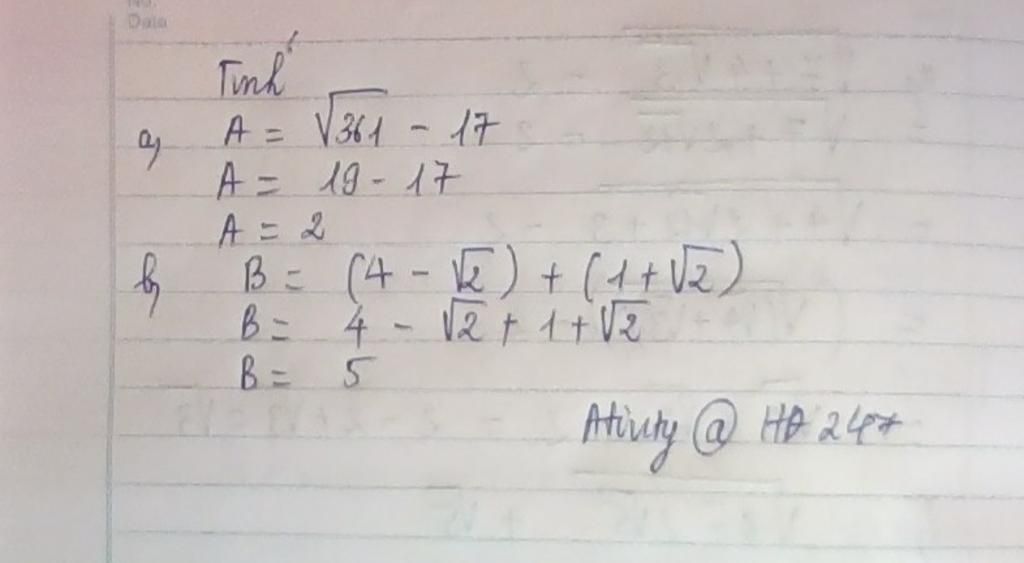 No.
Date
Tính
a, A = √361 - 17
A = 19 - 17
A = 2
b, B = (4 - √2) + (1 + √2)
B = 4 - √2 + 1 + √2
B = 5
@ HD 247